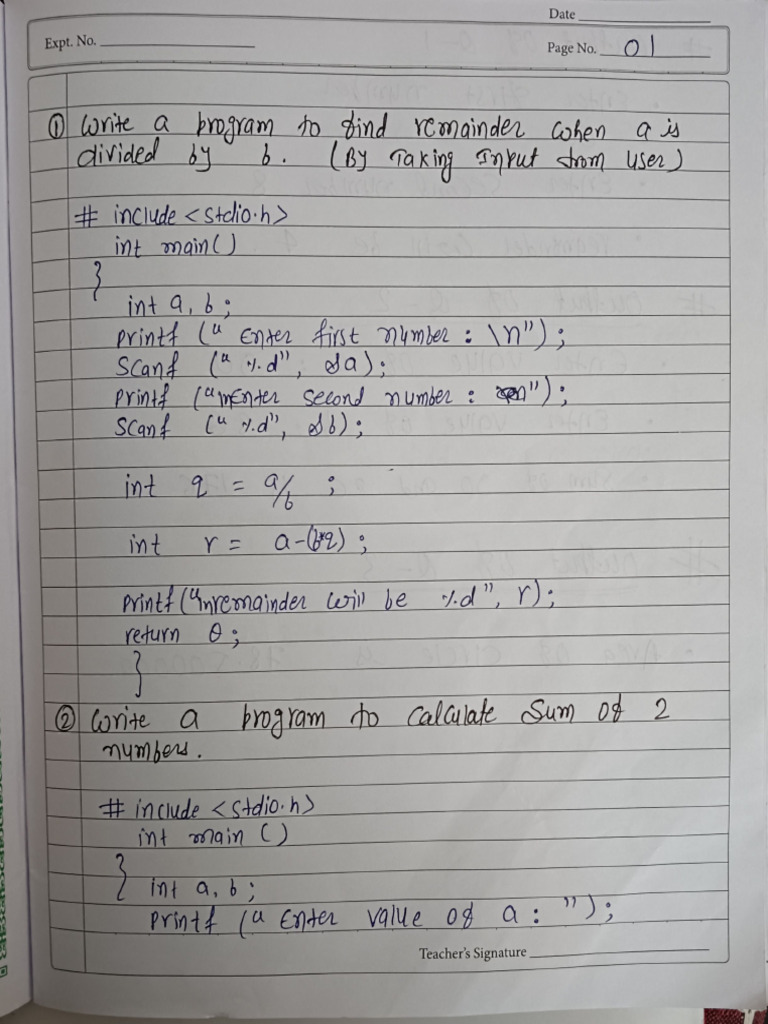 Date
Expt. No.
Page No. 01
① Write a program to find remainder when a is
divided by b. (By Taking Input from user)
# include <stdio.h>
int main()
}
int a, b;
printf (" Enter first number : \n");
Scanf (" %d", &a);
printf ("\nEnter second number : \n");
Scanf (" %d", &b);
int q = a/b ;
int r = a-(b*q) ;
printf("\nremainder will be %d", r);
return 0;
}
② Write a program to calculate Sum of 2
numbers.
# include <stdio.h>
int main ()
}
int a, b;
printf (" Enter value of a : ");
Teacher's Signature